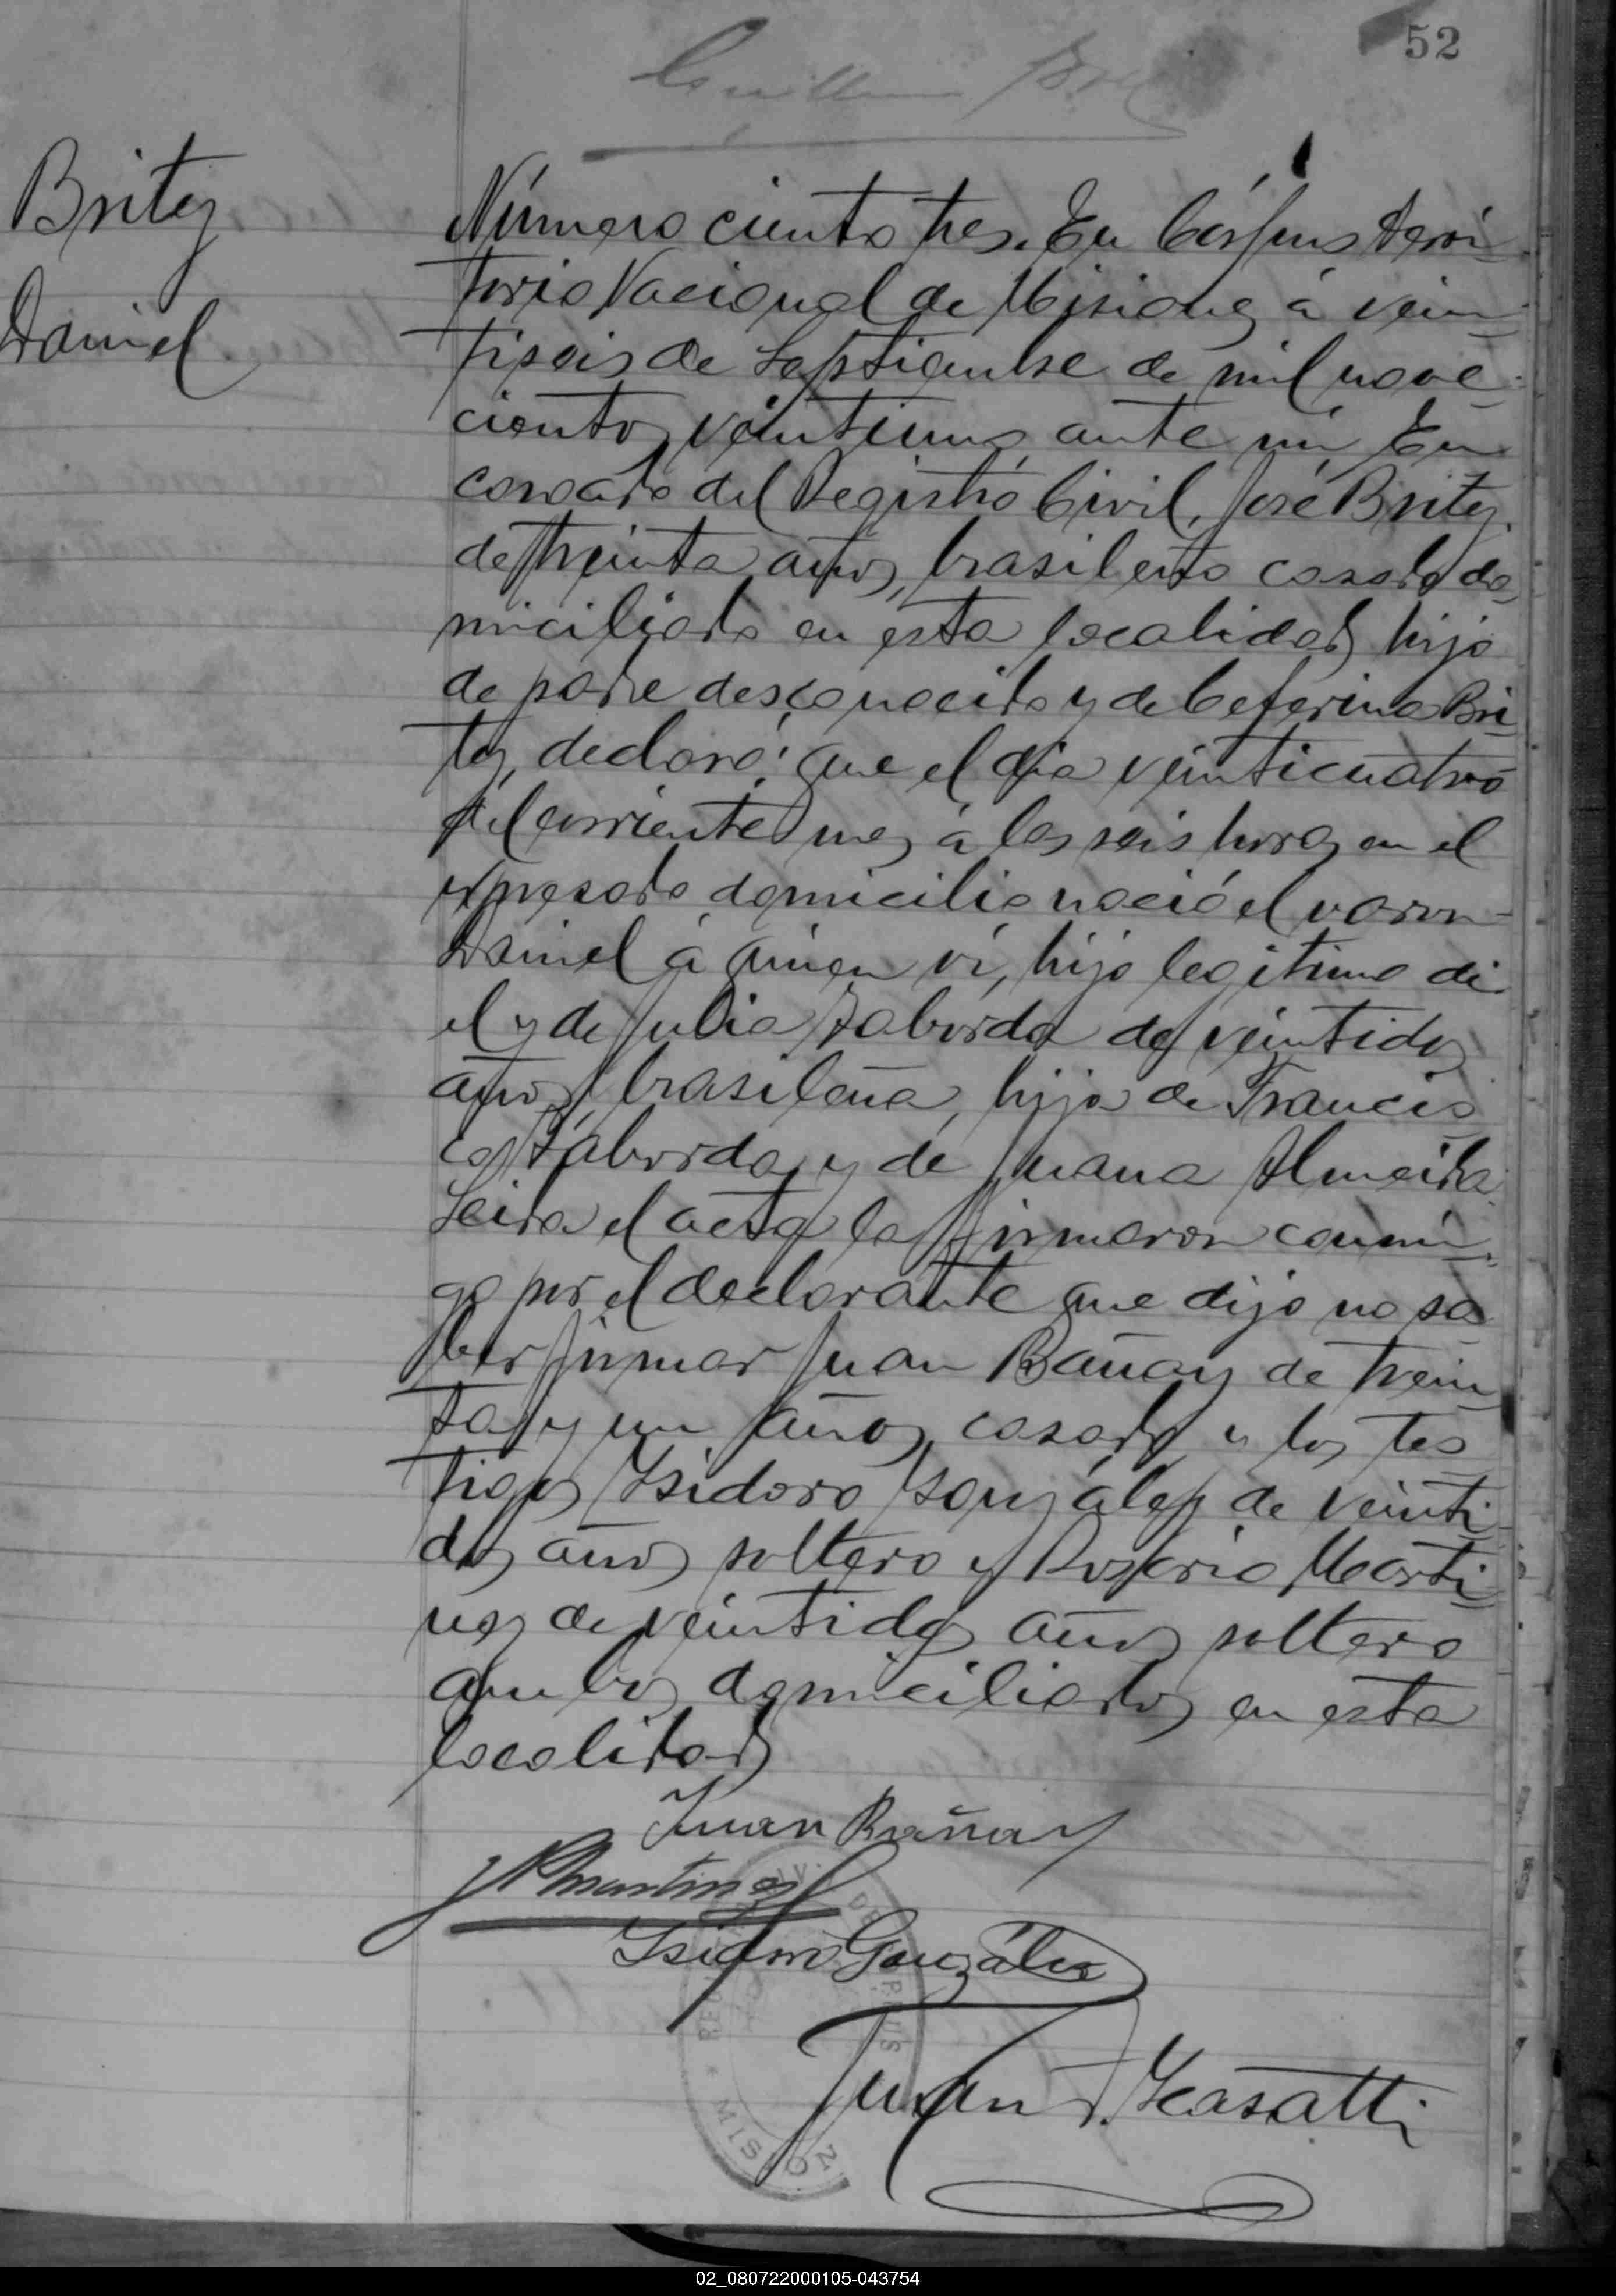 52
Britez
Daniel
Número ciento tres. En Córpus Terri-
torio Nacional de Misiones á vein-
tiseis de Septiembre de mil nove-
cientos veintiuno, ante mí En
cargado del Registro Civil, José Britez
de treinta años, brasileño casado do
miciliado en esta localidad, hijo
de padre desconocido y de Ceferina Bri-
tez, declaró: que el dia veinticuatro
del corriente mes á las seis horas en el
expresado domicilio nació el varon
Daniel á quien ví, hijo legitimo de
el y de Julia Taborda de veintidos
años, brasileña, hija de Francis
co Taborda y de Juana Almeida.
Leida el acta la firmaron conmi-
go por el declarante que dijo no sa
ber firmar Juan Bañay de trein
ta y un años, casado y los tes
tigos Isidoro González de veinti
dos años soltero y Rosario Marti
nez de veintidos años soltero
ambos domiciliados en esta
localidad
Juan Bañay
R Martinez
Isidoro González
Juan
MISION